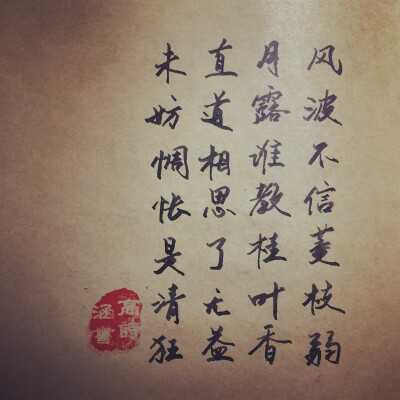 风波不信菱枝弱
月露谁教桂叶香
直道相思了无益
未妨惆怅是清狂